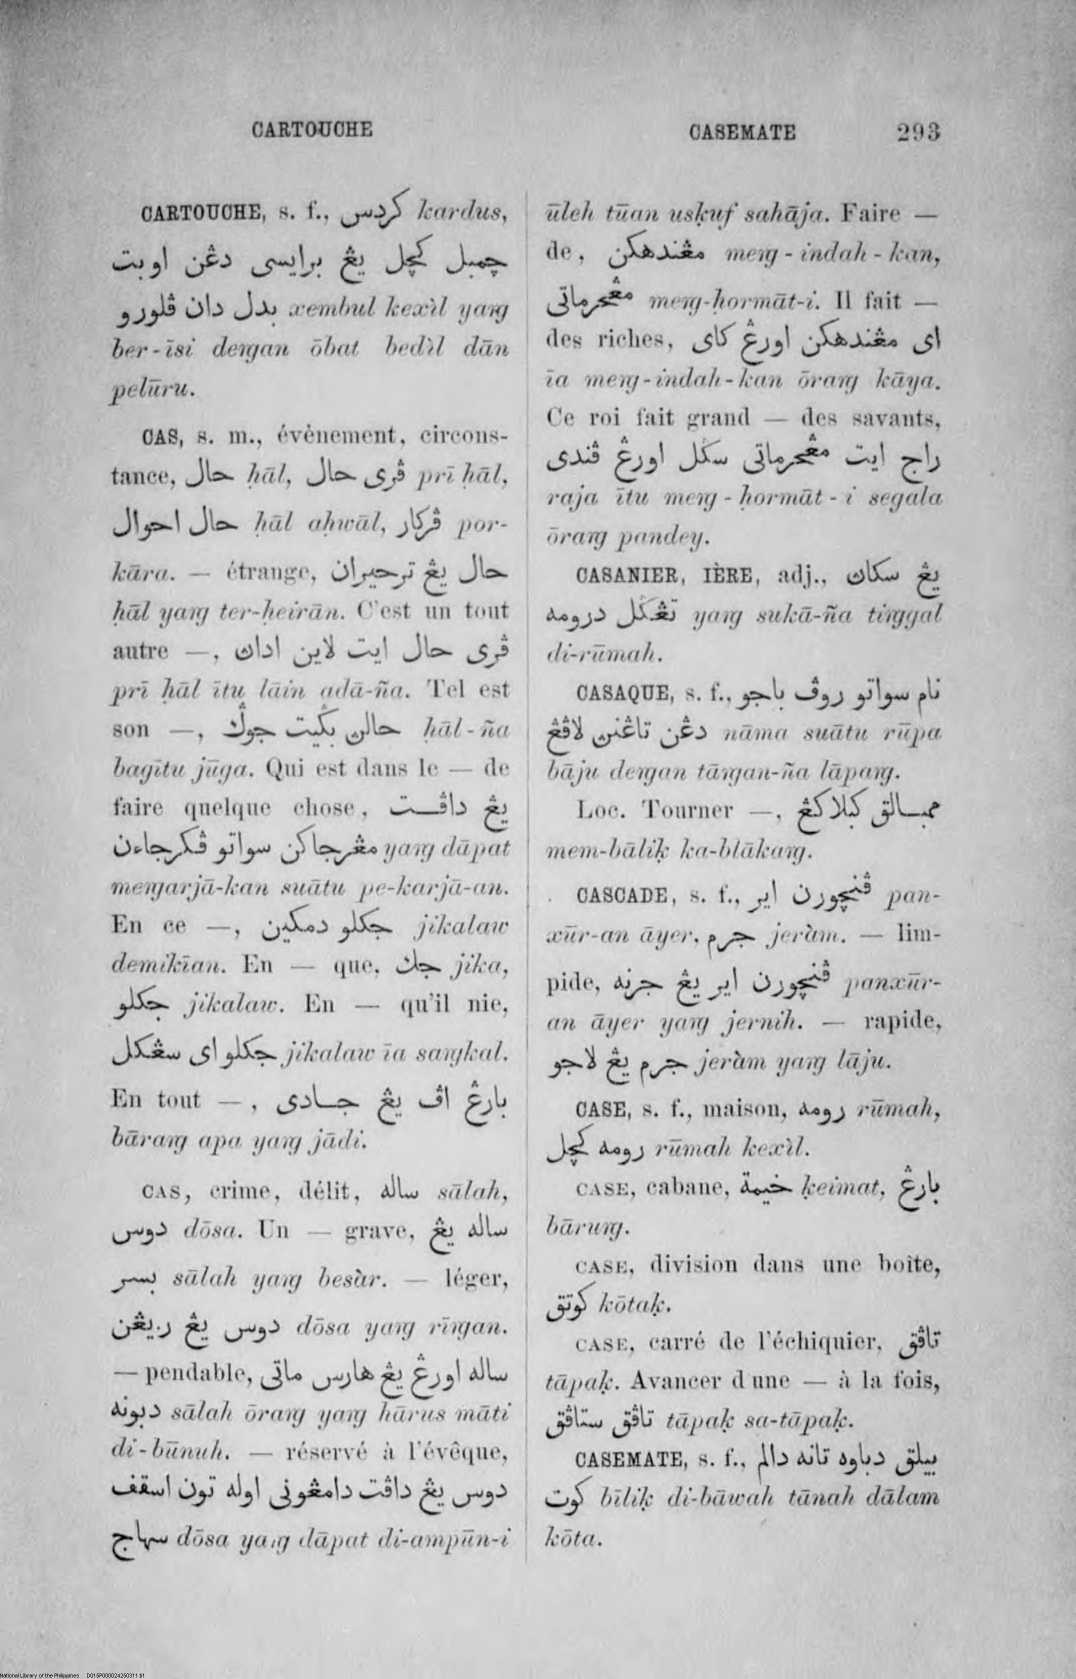 CARTOUCHE
CASEMATE 293
CARTOUCHE, s. f., كردس kardus,
چمبل كچل يڠ برايسى دڠن اوبت
بدل دان ڤلورو xembul kexìl yaṅg
ber-īsi deṅgan ōbat bedìl dān
pelūru.
CAS, s. m., événement, circons-
tance, حال ḥāl, ڤرى حال prī ḥāl,
حال احوال ḥāl aḥwāl, ڤركار por-
kāra. — étrange, حال يڠ ترحيران
ḥāl yaṅg ter-ḥeirān. C'est un tout
autre —, ڤرى حال ايت لاين اداڽ
prī ḥāl ītu lāin adā-ña. Tel est
son —, حالڽ بݢيت جوݢ ḥāl-ña
bagītu jūga. Qui est dans le — de
faire quelque chose, يڠ داڤت
مڠرجاكن سواتو ڤكرجاءن yaṅg dāpat
meṅgarjā-kan suātu pe-karjā-an.
En ce —, جكلو دمكين jikalaw
demikīan. En — que, جك jika,
جكلو jikalaw. En — qu'il nie,
جكلو اى سڠكل jikalaw īa saṅgkal.
En tout —, بارڠ اڤ يڠ جادى
bāraṅg apa yaṅg jādi.
CAS, crime, délit, ساله sālah,
دوس dōsa. Un — grave, ساله يڠ
بسر sālah yaṅg besàr. — léger,
دوس يڠ ريڠن dōsa yaṅg rīṅgan.
— pendable, ساله اورڠ يڠ هارس ماتى
دبونه sālah ōraṅg yaṅg hārus māti
di-būnuh. — réservé à l'évêque,
دوس يڠ داڤت دامڤونى اوله تون اسقف
سهاج dōsa yaṅg dāpat di-ampūn-i
ūleh tūan usḳuf sahāja. Faire —
de, مڠندهكن meṅg-indah-kan,
مڠحرماتى meṅg-ḥormāt-i. Il fait —
des riches, اى مڠندهكن اورڠ كاى
īa meṅg-indah-kan ōraṅg kāya.
Ce roi fait grand — des savants,
راج ايت مڠحرماتى سݢل اورڠ ڤندى
raja ītu meṅg-ḥormāt-i segala
ōraṅg pandey.
CASANIER, IÈRE, adj., يڠ سكاڽ
تڠݢل درومه yaṅg sukā-ña tiṅggal
di-rūmah.
CASAQUE, s. f., نام سواتو روڤ باجو
دڠن تاڠنڽ لاڤڠ nāma suātu rūpa
bāju deṅgan tāṅgan-ña lāpaṅg.
Loc. Tourner —, ممبالق كبلاكڠ
mem-bāliḳ ka-blākaṅg.
CASCADE, s. f., ڤنچورن اير pan-
xūr-an āyer, جرم jeràm. — lim-
pide, ڤنچورن اير يڠ جرنه panxūr-
an āyer yaṅg jernih. — rapide,
جرم يڠ لاجو jeràm yaṅg lāju.
CASE, s. f., maison, رومه rūmah,
رومه كچل rūmah kexìl.
CASE, cabane, خيمة ḳeimat, بارڠ
bāruṅg.
CASE, division dans une boîte,
كوتق kōtaḳ.
CASE, carré de l'échiquier, تاڤق
tāpaḳ. Avancer d'une — à la fois,
تاڤق ستاڤق tāpaḳ sa-tāpaḳ.
CASEMATE, s. f., بيلق دباوه تانه دالم
كوت bīliḳ di-bāwah tānah dālam
kōta.
National Library of the Philippines